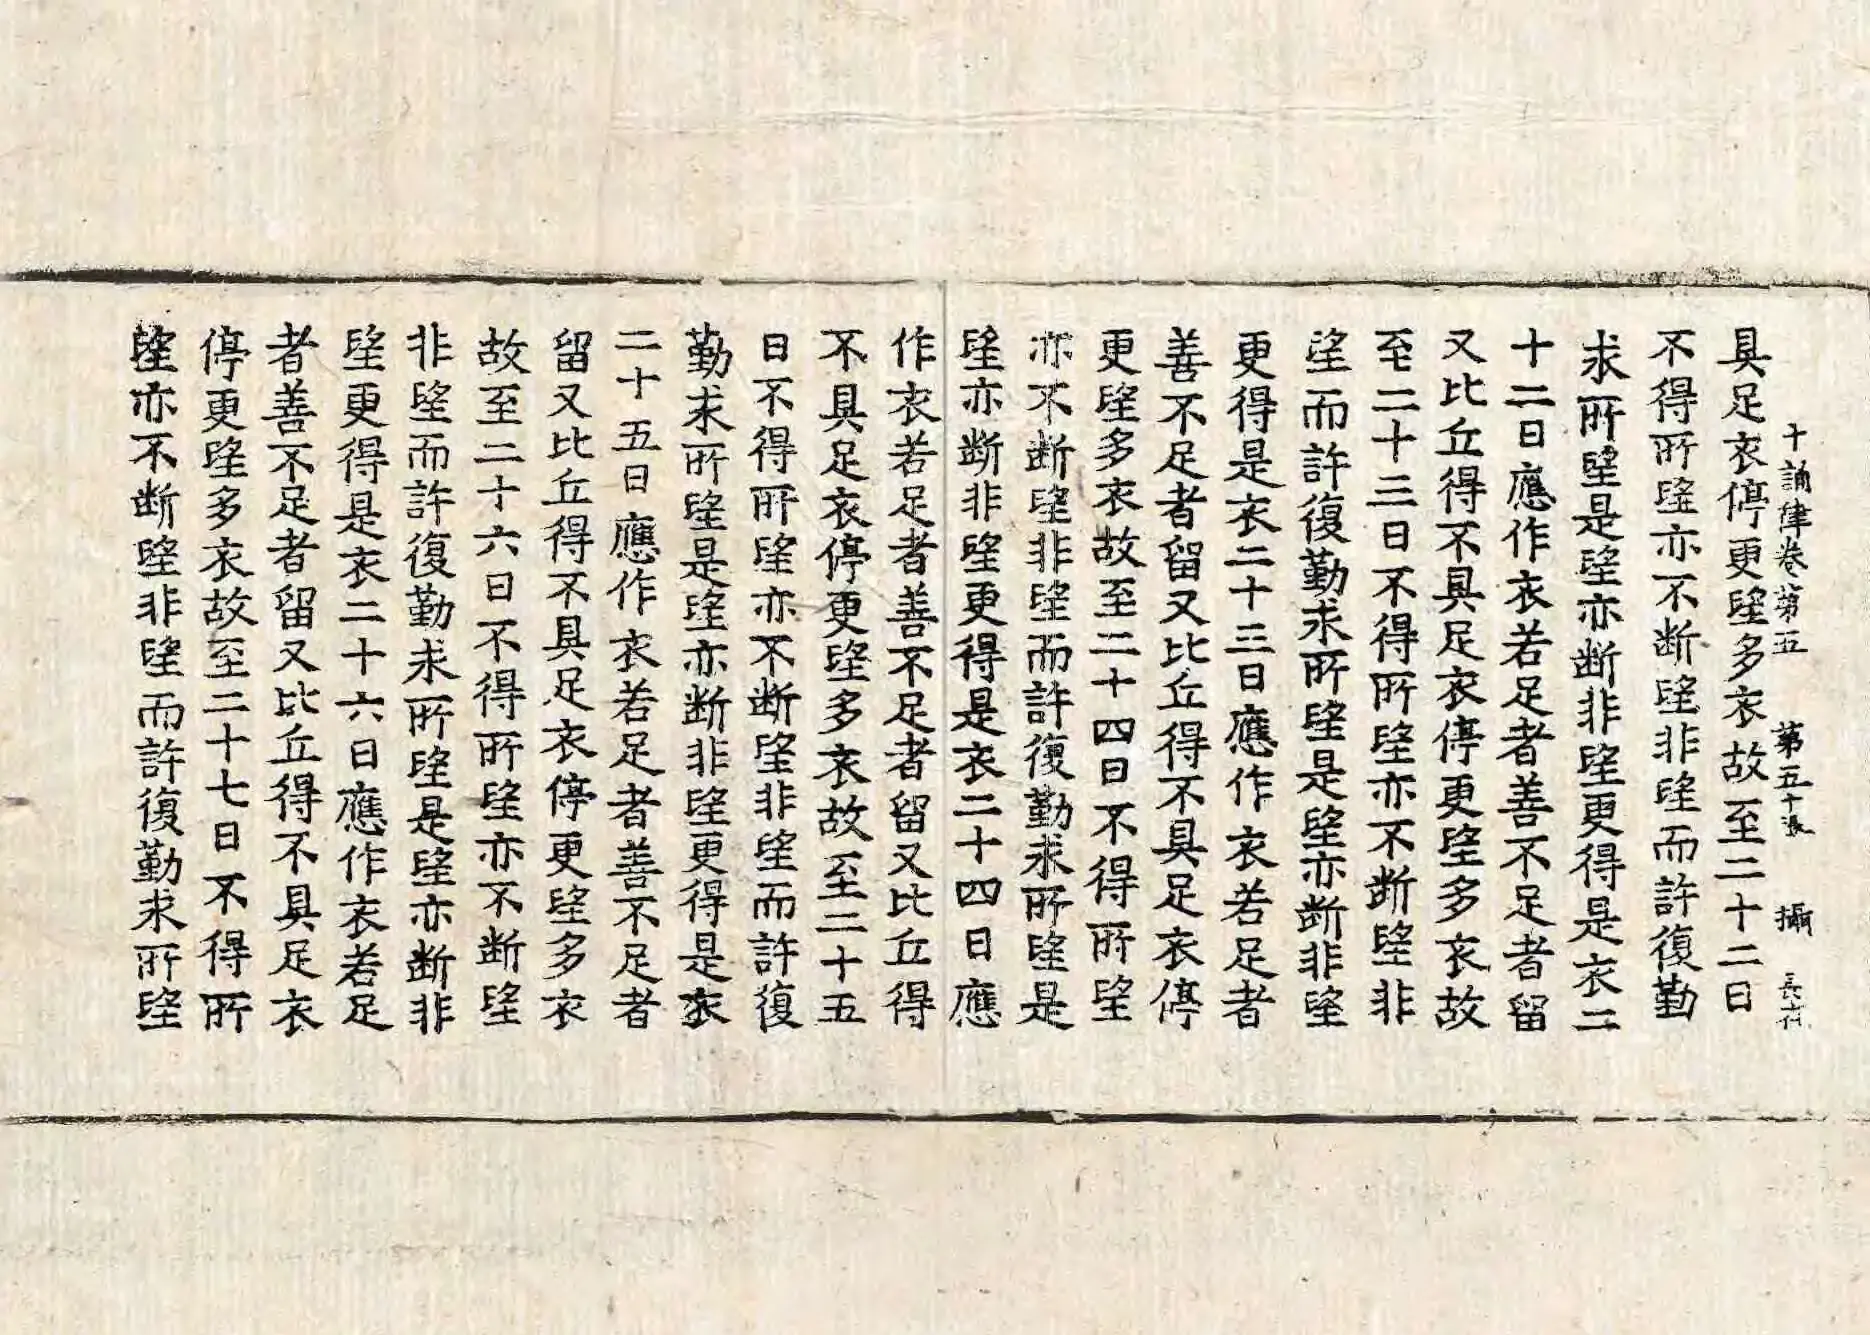 十誦律卷第五　第五十張　攝
具足衣停更望多衣故至二十二日
不得所望亦不断望非望而許復勤
求所望是望亦断非望更得是衣二
十二日應作衣若足者善不足者留
又比丘得不具足衣停更望多衣故
至二十三日不得所望亦不断望非
望而許復勤求所望是望亦断非望
更得是衣二十三日應作衣若足者
善不足者留又比丘得不具足衣停
更望多衣故至二十四日不得所望
亦不断望非望而許復勤求所望是
望亦断非望更得是衣二十四日應
作衣若足者善不足者留又比丘得
不具足衣停更望多衣故至二十五
日不得所望亦不断望非望而許復
勤求所望是望亦断非望更得是衣
二十五日應作衣若足者善不足者
留又比丘得不具足衣停更望多衣
故至二十六日不得所望亦不断望
非望而許復勤求所望是望亦断非
望更得是衣二十六日應作衣若足
者善不足者留又比丘得不具足衣
停更望多衣故至二十七日不得所
望亦不断望非望而許復勤求所望